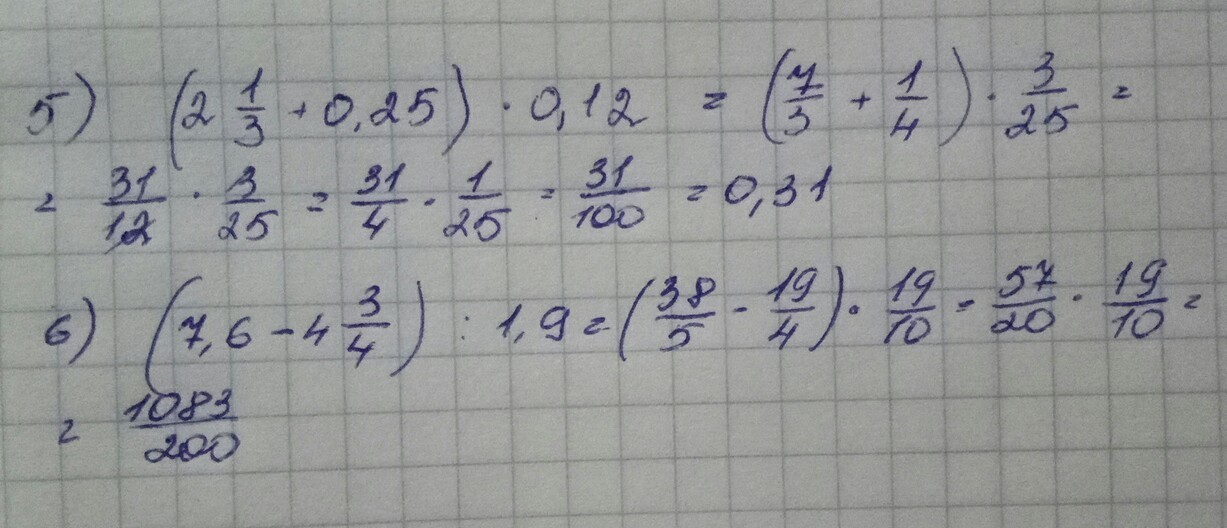 5) (2 1/3 + 0,25) · 0,12 = (7/3 + 1/4) · 3/25 =
= 31/12 · 3/25 = 31/4 · 1/25 = 31/100 = 0,31
6) (7,6 - 4 3/4) : 1,9 = (38/5 - 19/4) · 19/10 = 57/20 · 19/10 =
= 1083/200